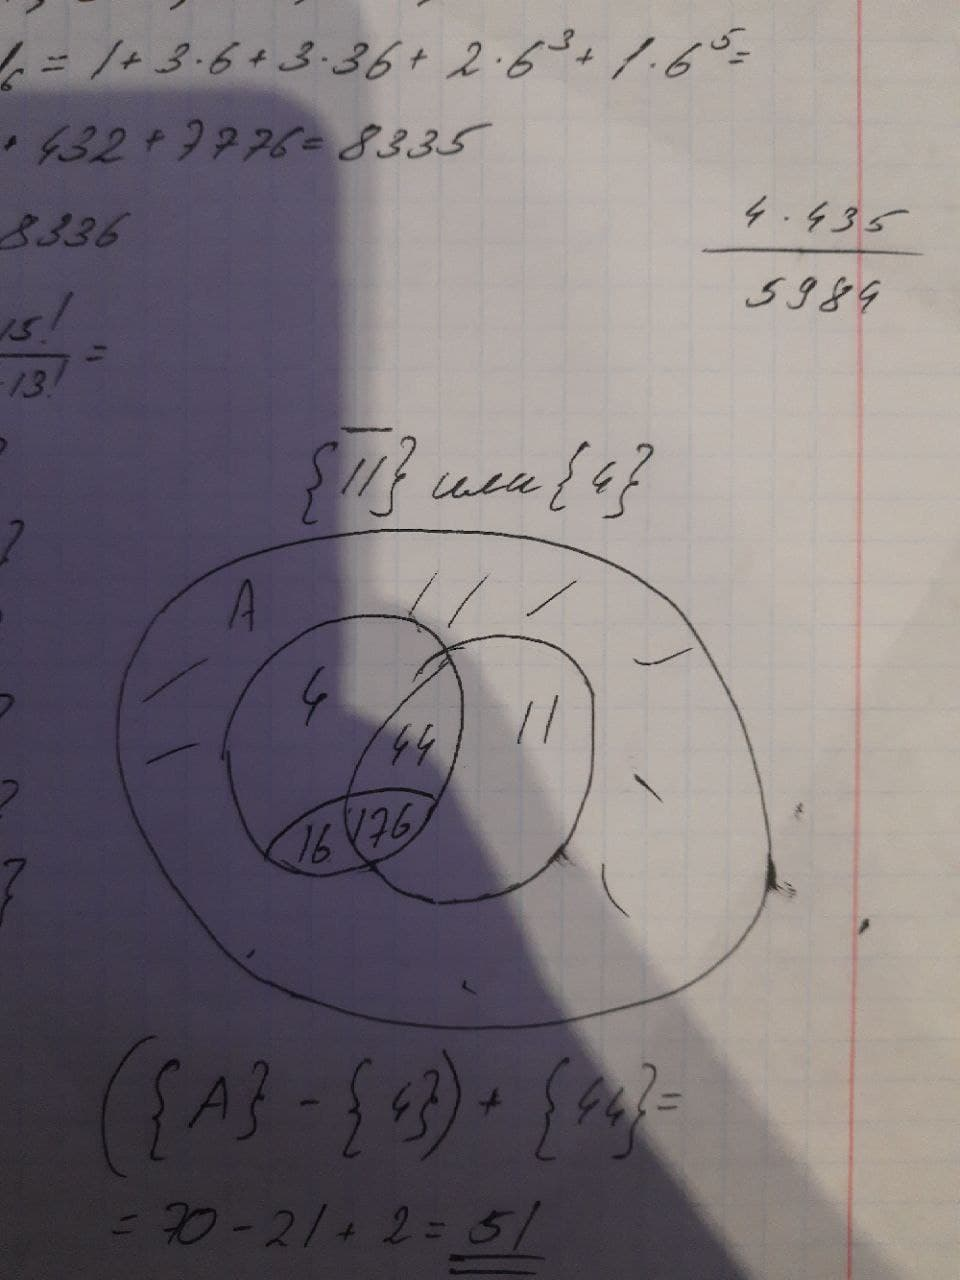 6 = 1 + 3·6 + 3·36 + 2·6³ + 1·6⁵ =
+ 432 + 7776 = 8335
8336
4·435
5984
15!
13! =
{1̅1̅} или {4}
A
4
11
44
16
176
({A} - {4}) + {44} =
= 70 - 21 + 2 = 51